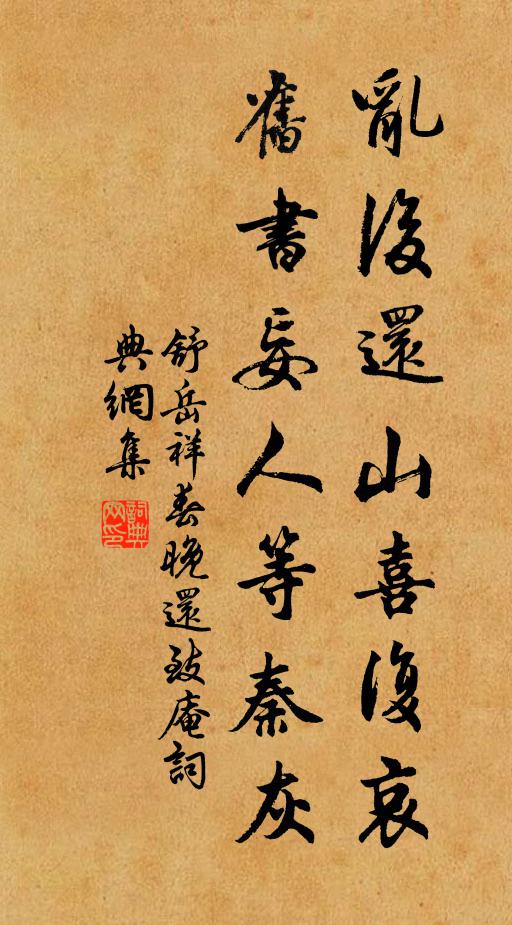 亂後還山喜復哀
舊書妄人等秦灰
舒岳祥春晚還致庵詞
典網集
詞典網印